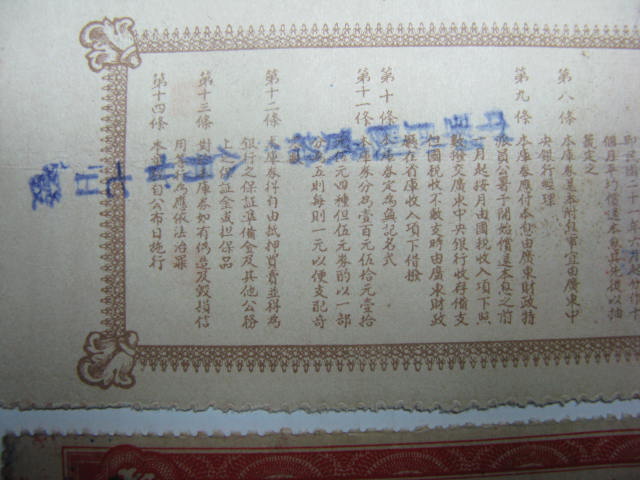 籤定之
第八條 本庫券還本附息事宜由廣東中
央銀行經理
第九條 本庫券應付本息由廣東財政特
派員公署于開始償還本息之前
一月起按月由國稅收入項下照
數撥交廣東中央銀行收存備支
但國稅收不敷支時由廣東財政
廳在省庫收入項下借撥
第十條 本庫券定為無記名式
第十一條 本庫券分為壹百元伍拾元壹拾
元伍元四種但伍元券酌以一部
分為五則每則一元以便支配奇
第十二條 本庫券得自由抵押買賣並得為
銀行之保証準備金及其他公務
上之保証金或担保品
第十三條 對於本庫券如有偽造及毀損信
用等行為應依法治罪
第十四條 本條例自公布日施行